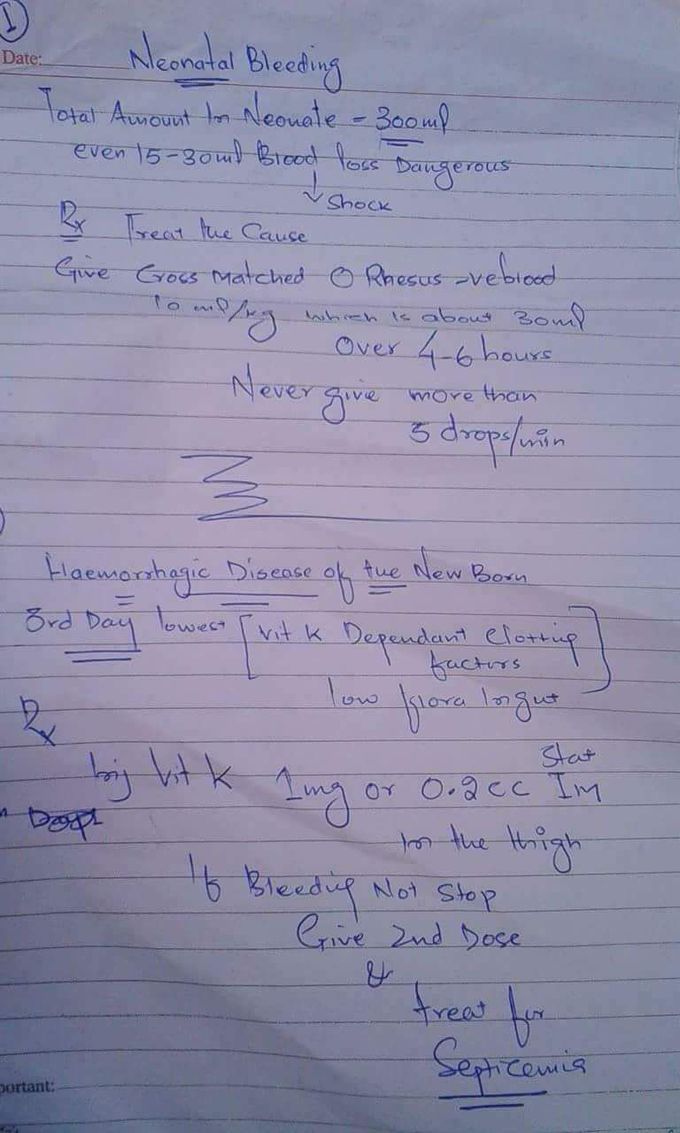 1
Date:
Neonatal Bleeding
Total Amount In Neonate - 300ml
even 15-30ml Blood loss Dangerous
↓ Shock
Rx Treat the Cause
Give Cross Matched O Rhesus -ve blood
10 ml/kg which is about 30ml
Over 4-6 hours
Never give more than
5 drops/min
Haemorrhagic Disease of the New Born
3rd Day lowest [Vit K Dependant Clotting
factors
low flora In gut]
Rx
Stat
Inj Vit K 1mg or 0.2cc IM
In the thigh
If Bleeding Not Stop
Give 2nd Dose
&
treat for
Septicemia
portant: